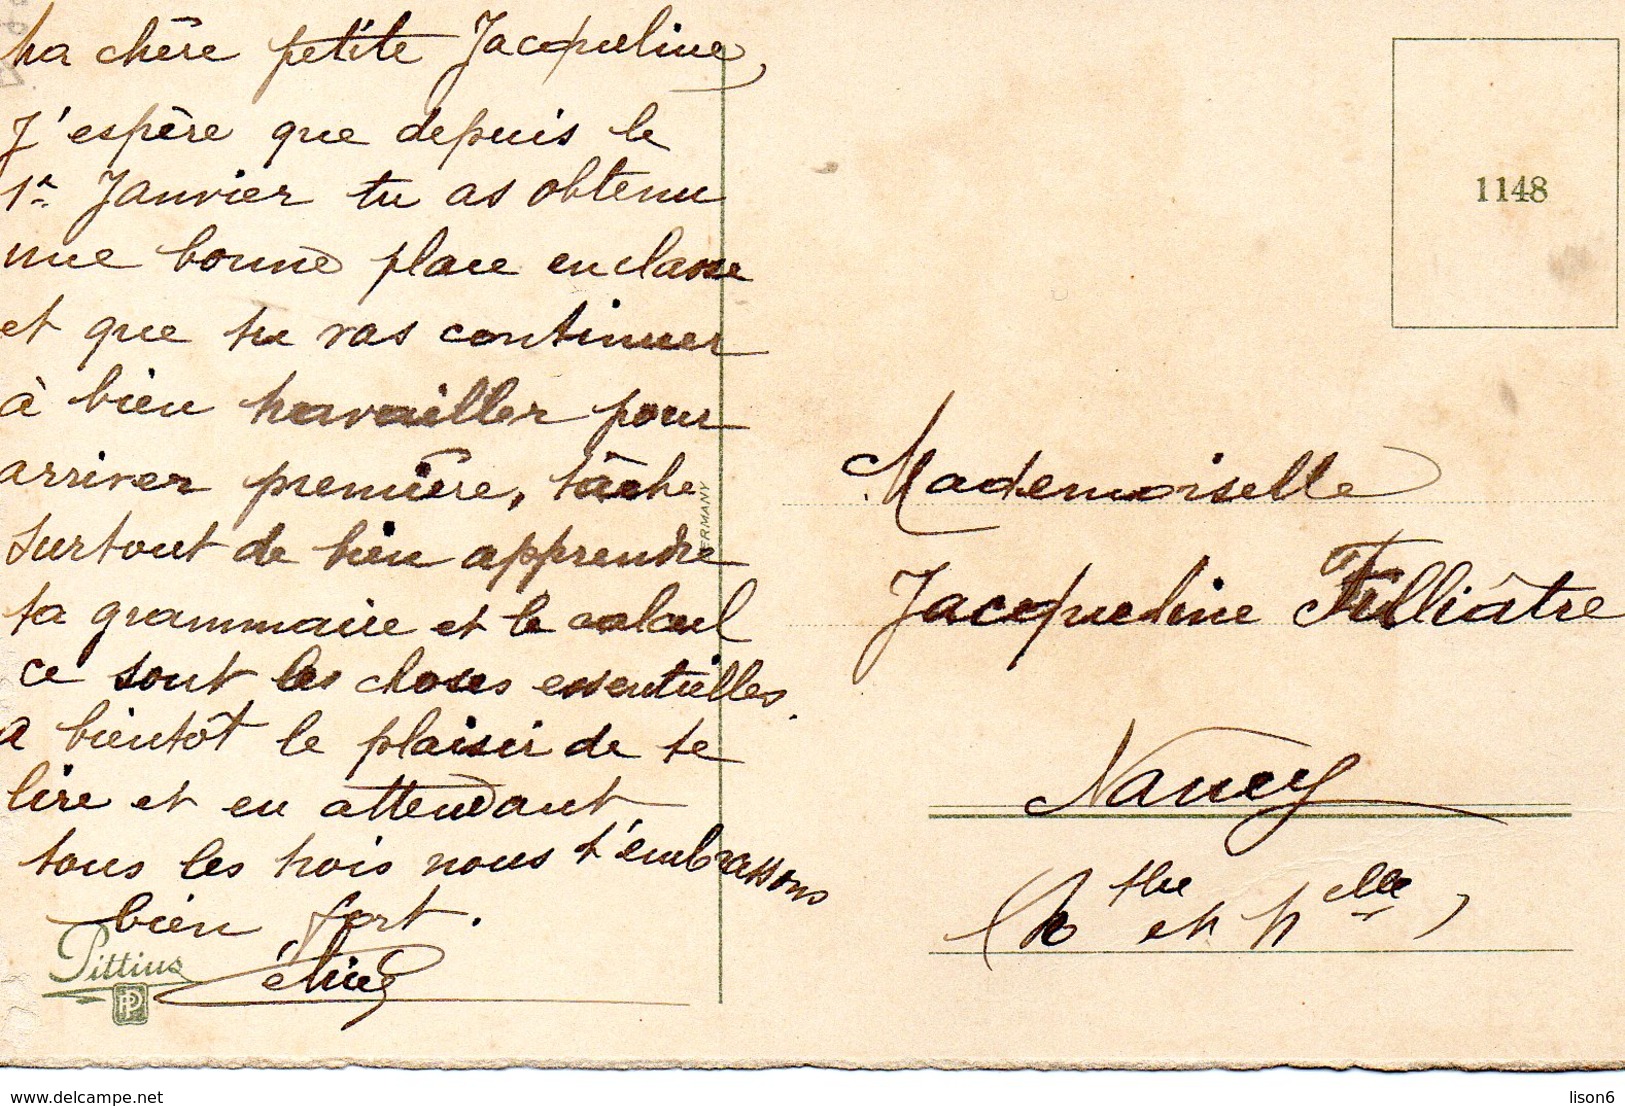 Ma chère petite Jacqueline,
J'espère que depuis le
1er Janvier tu as obtenu
une bonne place en classe
et que tu vas continuer
à bien travailler pour
arriver première, tâche
surtout de bien apprendre
ta grammaire et le calcul
ce sont les choses essentielles.
A bientôt le plaisir de te
lire et en attendant
tous les trois nous t'embrassons
bien fort.
Pittius
PP
ERMANY
1148
Mademoiselle
Jacqueline Filliâtre
Nancy
(Mthe et Mlle)
delcampe.net
lison6